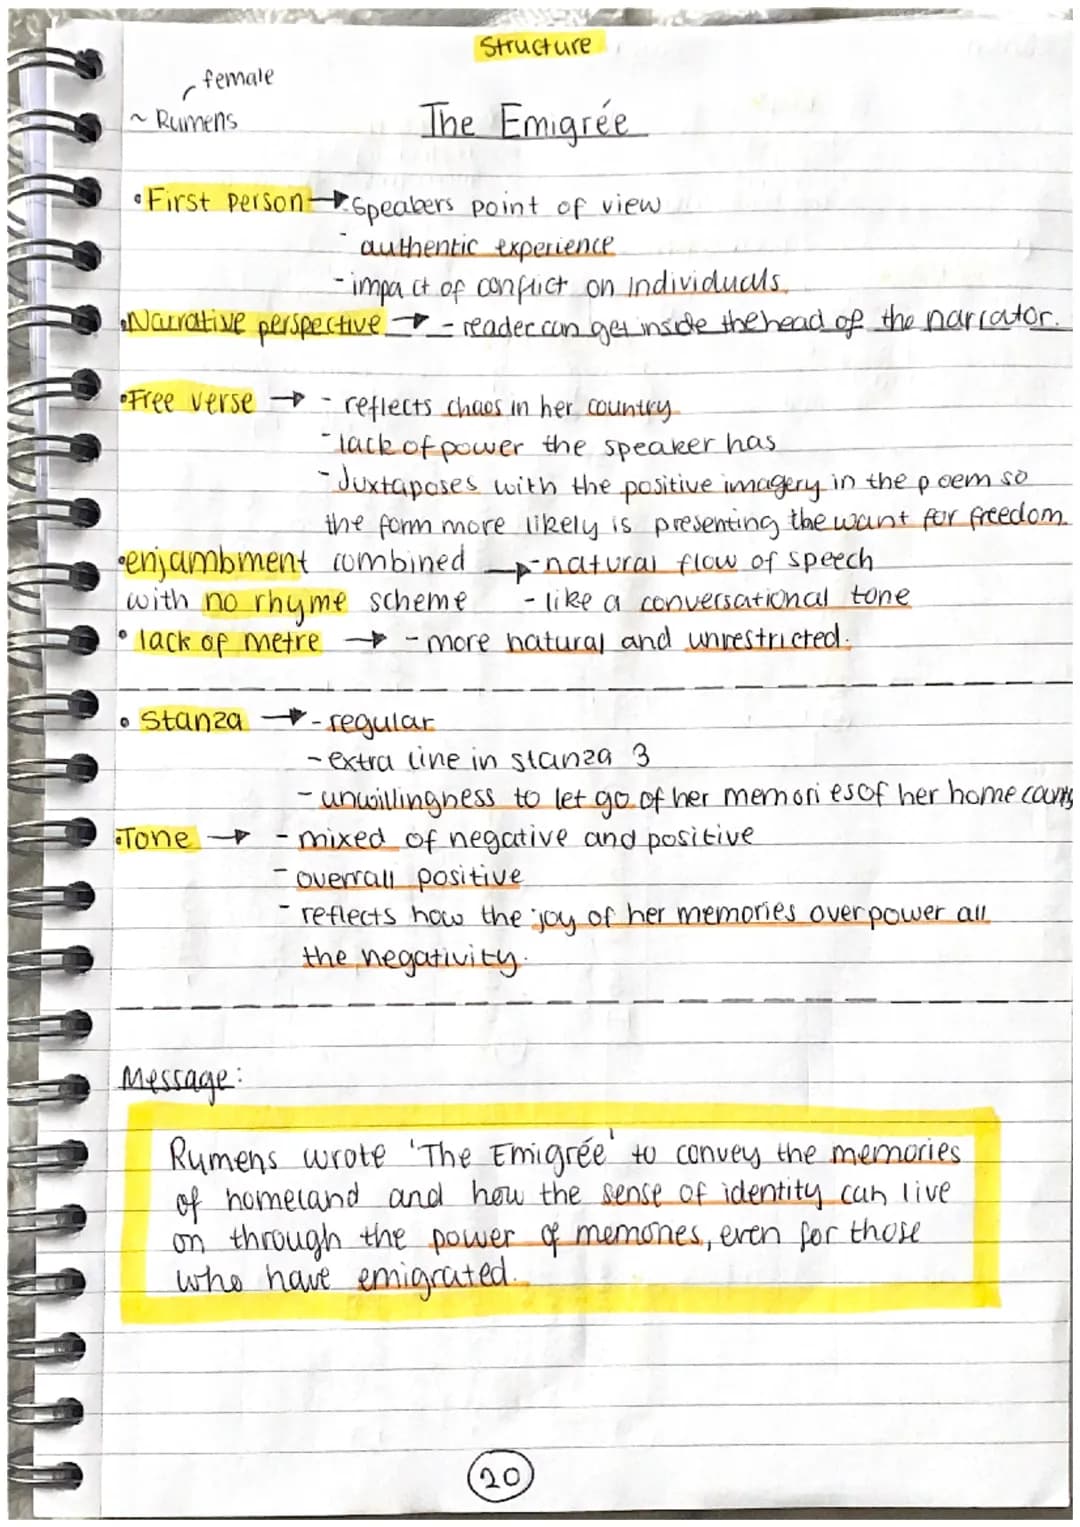 Structure
female
~ Rumens
The Emigrée
• First person → Speakers point of view
- authentic experience
- impact of conflict on individuals.
• Narrative perspective → - reader can get inside the head of the narrator.
• Free verse → - reflects chaos in her country
- lack of power the speaker has
- Juxtaposes with the positive imagery in the poem so
the form more likely is presenting the want for freedom.
• enjambment combined → - natural flow of speech
with no rhyme scheme - like a conversational tone
• lack of metre → - more natural and unrestricted.
• Stanza → - regular
- extra line in stanza 3
- unwillingness to let go of her memories of her home
• Tone → - mixed of negative and positive
- overrall positive
- reflects how the joy of her memories overpower all
the negativity.
Message:
Rumens wrote 'The Emigrée' to convey the memories
of homeland and how the sense of identity can live
on through the power of memories, even for those
who have emigrated.
20